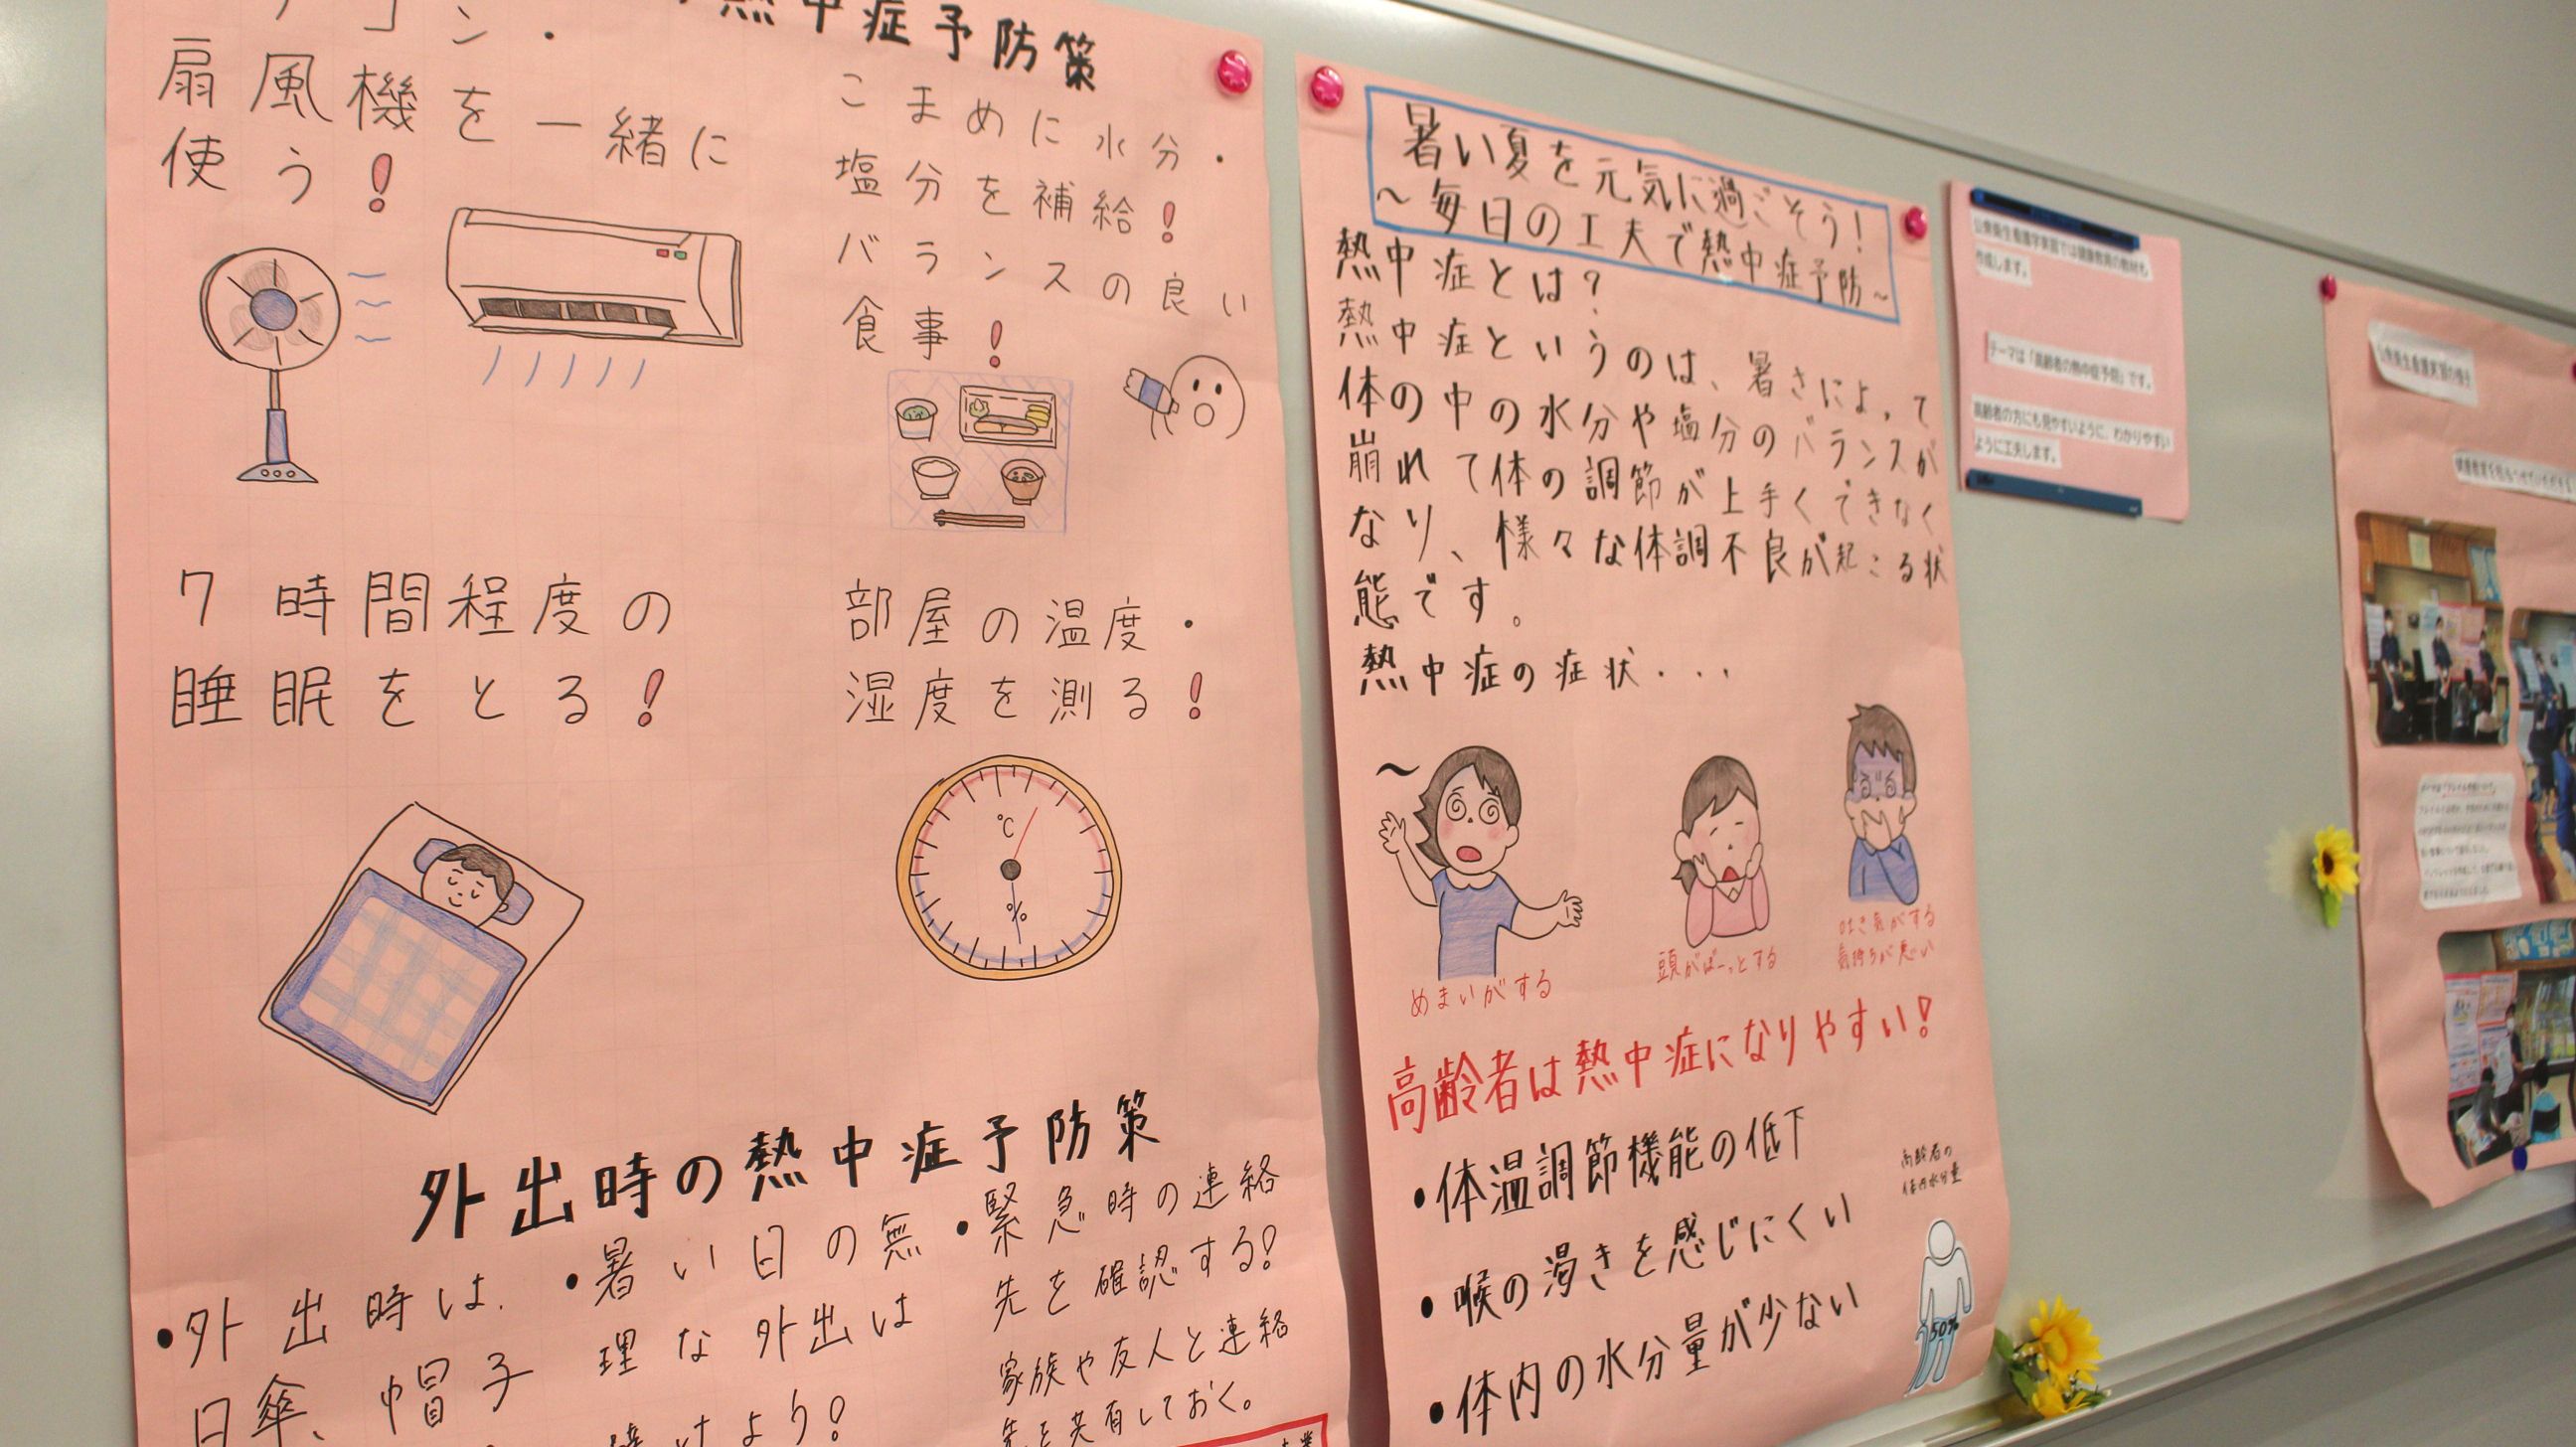 熱中症予防策
コン・
扇風機を一緒に
使う!
こまめに水分・
塩分を補給!
バランスの良い
食事!
7時間程度の
睡眠をとる!
部屋の温度・
湿度を測る!
℃
%
外出時の熱中症予防策
・外出時は、
日傘、帽子
・暑い日の無
理な外出は
けよう!
・緊急時の連絡
先を確認する!
家族や友人と連絡
先を共有しておく。
暑い夏を元気に過ごそう!
～毎日の工夫で熱中症予防～
熱中症とは?
熱中症というのは、暑さによって
体の中の水分や塩分のバランスが
崩れて体の調節が上手くできなく
なり、様々な体調不良が起こる状
態です。
熱中症の症状・・・
めまいがする
頭がぼーっとする
吐き気がする
気持ちが悪い
高齢者は熱中症になりやすい!
・体温調節機能の低下
・喉の渇きを感じにくい
・体内の水分量が少ない
高齢者の
体内水分量
50%
公衆衛生看護学実習では健康教育の教材も
作成します。
テーマは「高齢者の熱中症予防」です。
高齢者の方にも見やすいように、わかりやすい
ように工夫します。
公衆衛生看護実習の様子